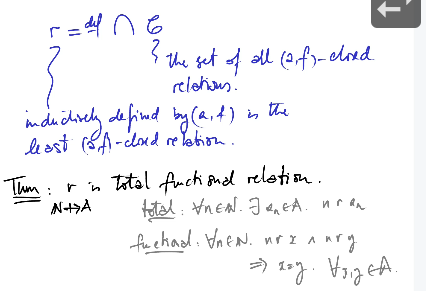 r =def ⋂ C
the set of all (a,f)-closed
relations.
inductively defined by (a,f) is the
least (a,f)-closed relation.
Thm: r is total fuctional relation.
N⇸A
total: ∀n∈N. ∃ aₙ∈A. n r aₙ
fuctional: ∀n∈N. n r x ∧ n r y
⇒ x=y. ∀x,y∈A.